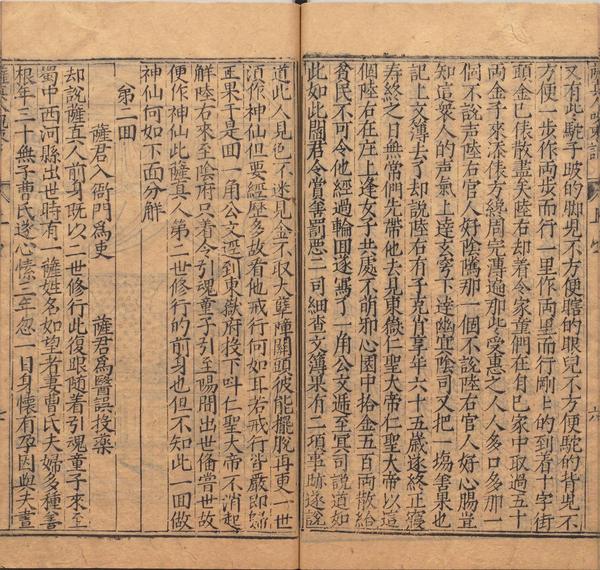 又有些駝手跛的脚兒不方便瞎的眼兒不方便駝的背兒不
方便一步作兩步而行一里作兩里而行剛上的到着十字街
頭金已俵散盡矣陸右却着令家童們在自己家中取過五十
兩金子來添俵方終周完普遍那些受惠之人人多口多那一
個不說声陸右官人好陰騭那一個不說陸右官人好心賜豈
知這衆人的声氣上達玄穹下達幽冥陰司又把一塲善果也
記上文簿去了却說陸右有子克肖享年六十五歲遂終正寢
壽終之日無常們先帶他去見東嶽仁聖大帝仁聖大帝以這
個陸右在庄上逢女子共処不萌邪心園中拾金五百兩散給
貧民不可令他經過輪回遂寫了一角公文逓至冥司說道如
此如此閻君令賞善罰悪二司細查文簿果有二項事跡遂說
道此人見色不迷見金不取大孽障關頭彼能擺脫再更一世
湏作神仙但要經歷多故看他戒行何如耳若戒行皆嚴即歸
正果于是回一角公文逓到東嶽府投下叫仁聖大帝不消起
觧陸右來至陰府只着令引魂童子引至陽間出世俻嘗世故
便作神仙此薩真人第二世修行的前身也但不知此一回做
神仙何如下面分觧
第二回
薩君入衙門為吏 薩君為醫誤投藥
却說薩真人前身既以二世修行此復跟隨着引魂童子來至
蜀中西河縣出世時有一薩姓名如望者妻曹氏夫婦多種善
根年三十無子曹氏遂心愫三年忽一日身懷有孕因與夫晝